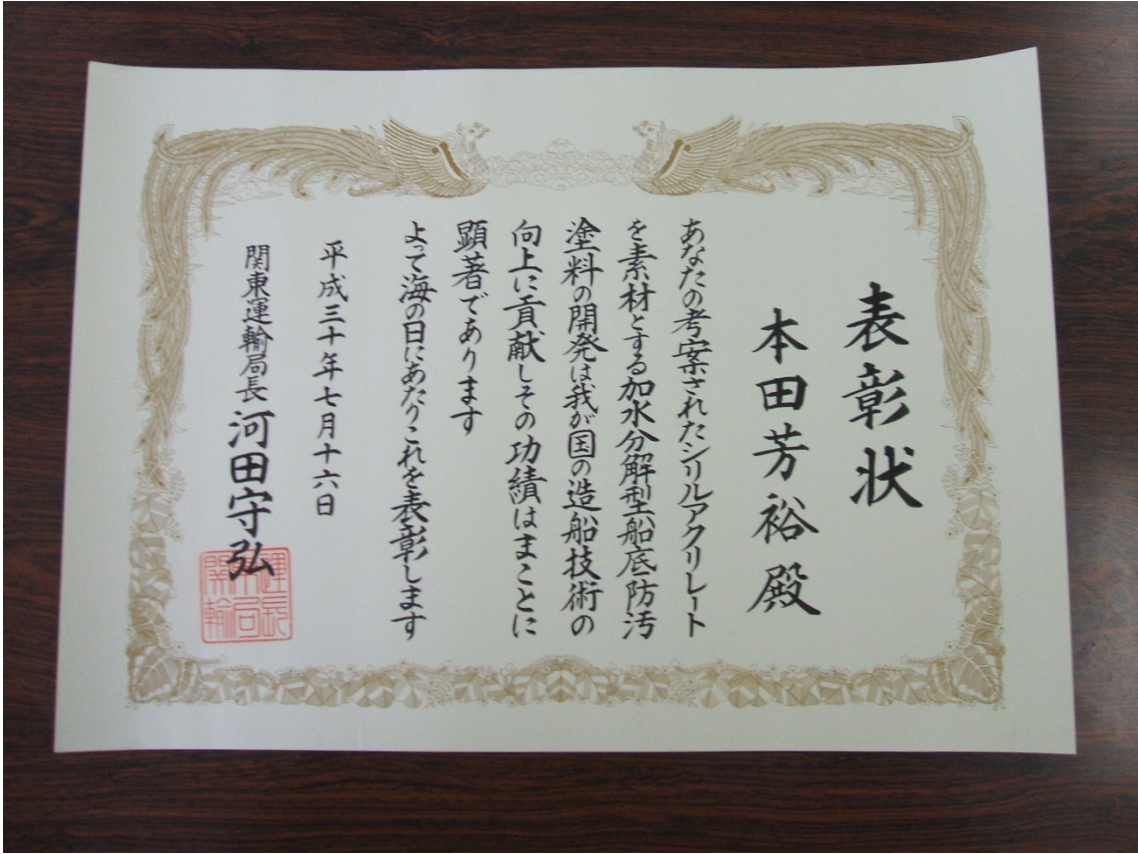 表彰状
本田芳裕殿
あなたの考案されたシリルアクリレート
を素材とする加水分解型船底防汚
塗料の開発は我が国の造船技術の
向上に貢献しその功績はまことに
顕著であります
よって海の日にあたりこれを表彰します
平成三十年七月十六日
関東運輸局長 河田守弘